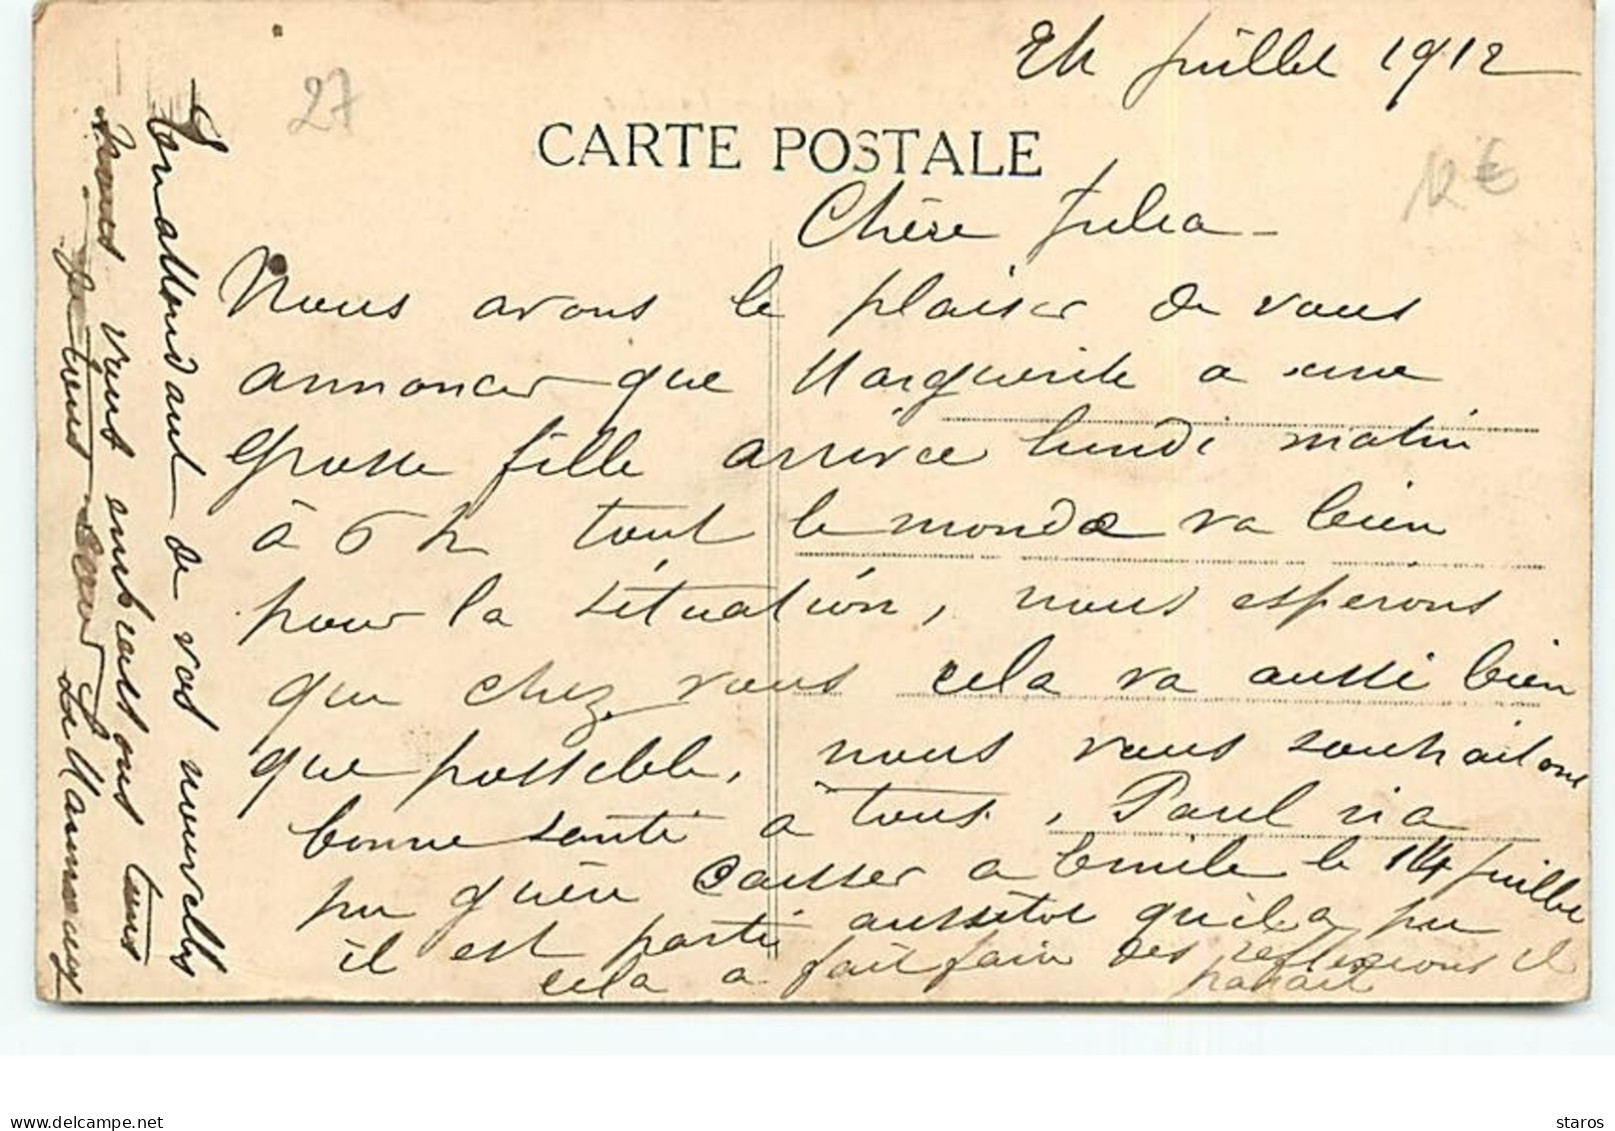 24 Juillet 1912
27
CARTE POSTALE
12 €
Chère Julia -
Nous avons le plaisir de vous
annoncer que Marguerite a une
grosse fille arrivée lundi matin
à 6 h tout le monde va bien
pour la situation, nous esperons
que chez vous cela va aussi bien
que possible, nous vous souhaitons
bonne santé à tous, Paul n'a
pu guère causer a Emile le 14 Juillet
il est parti aussitot qu'il a pu
cela a fait faire des reflexions il
parait
En attendant de vos nouvelles
nous vous embrassons tous
delcampe.net
staros